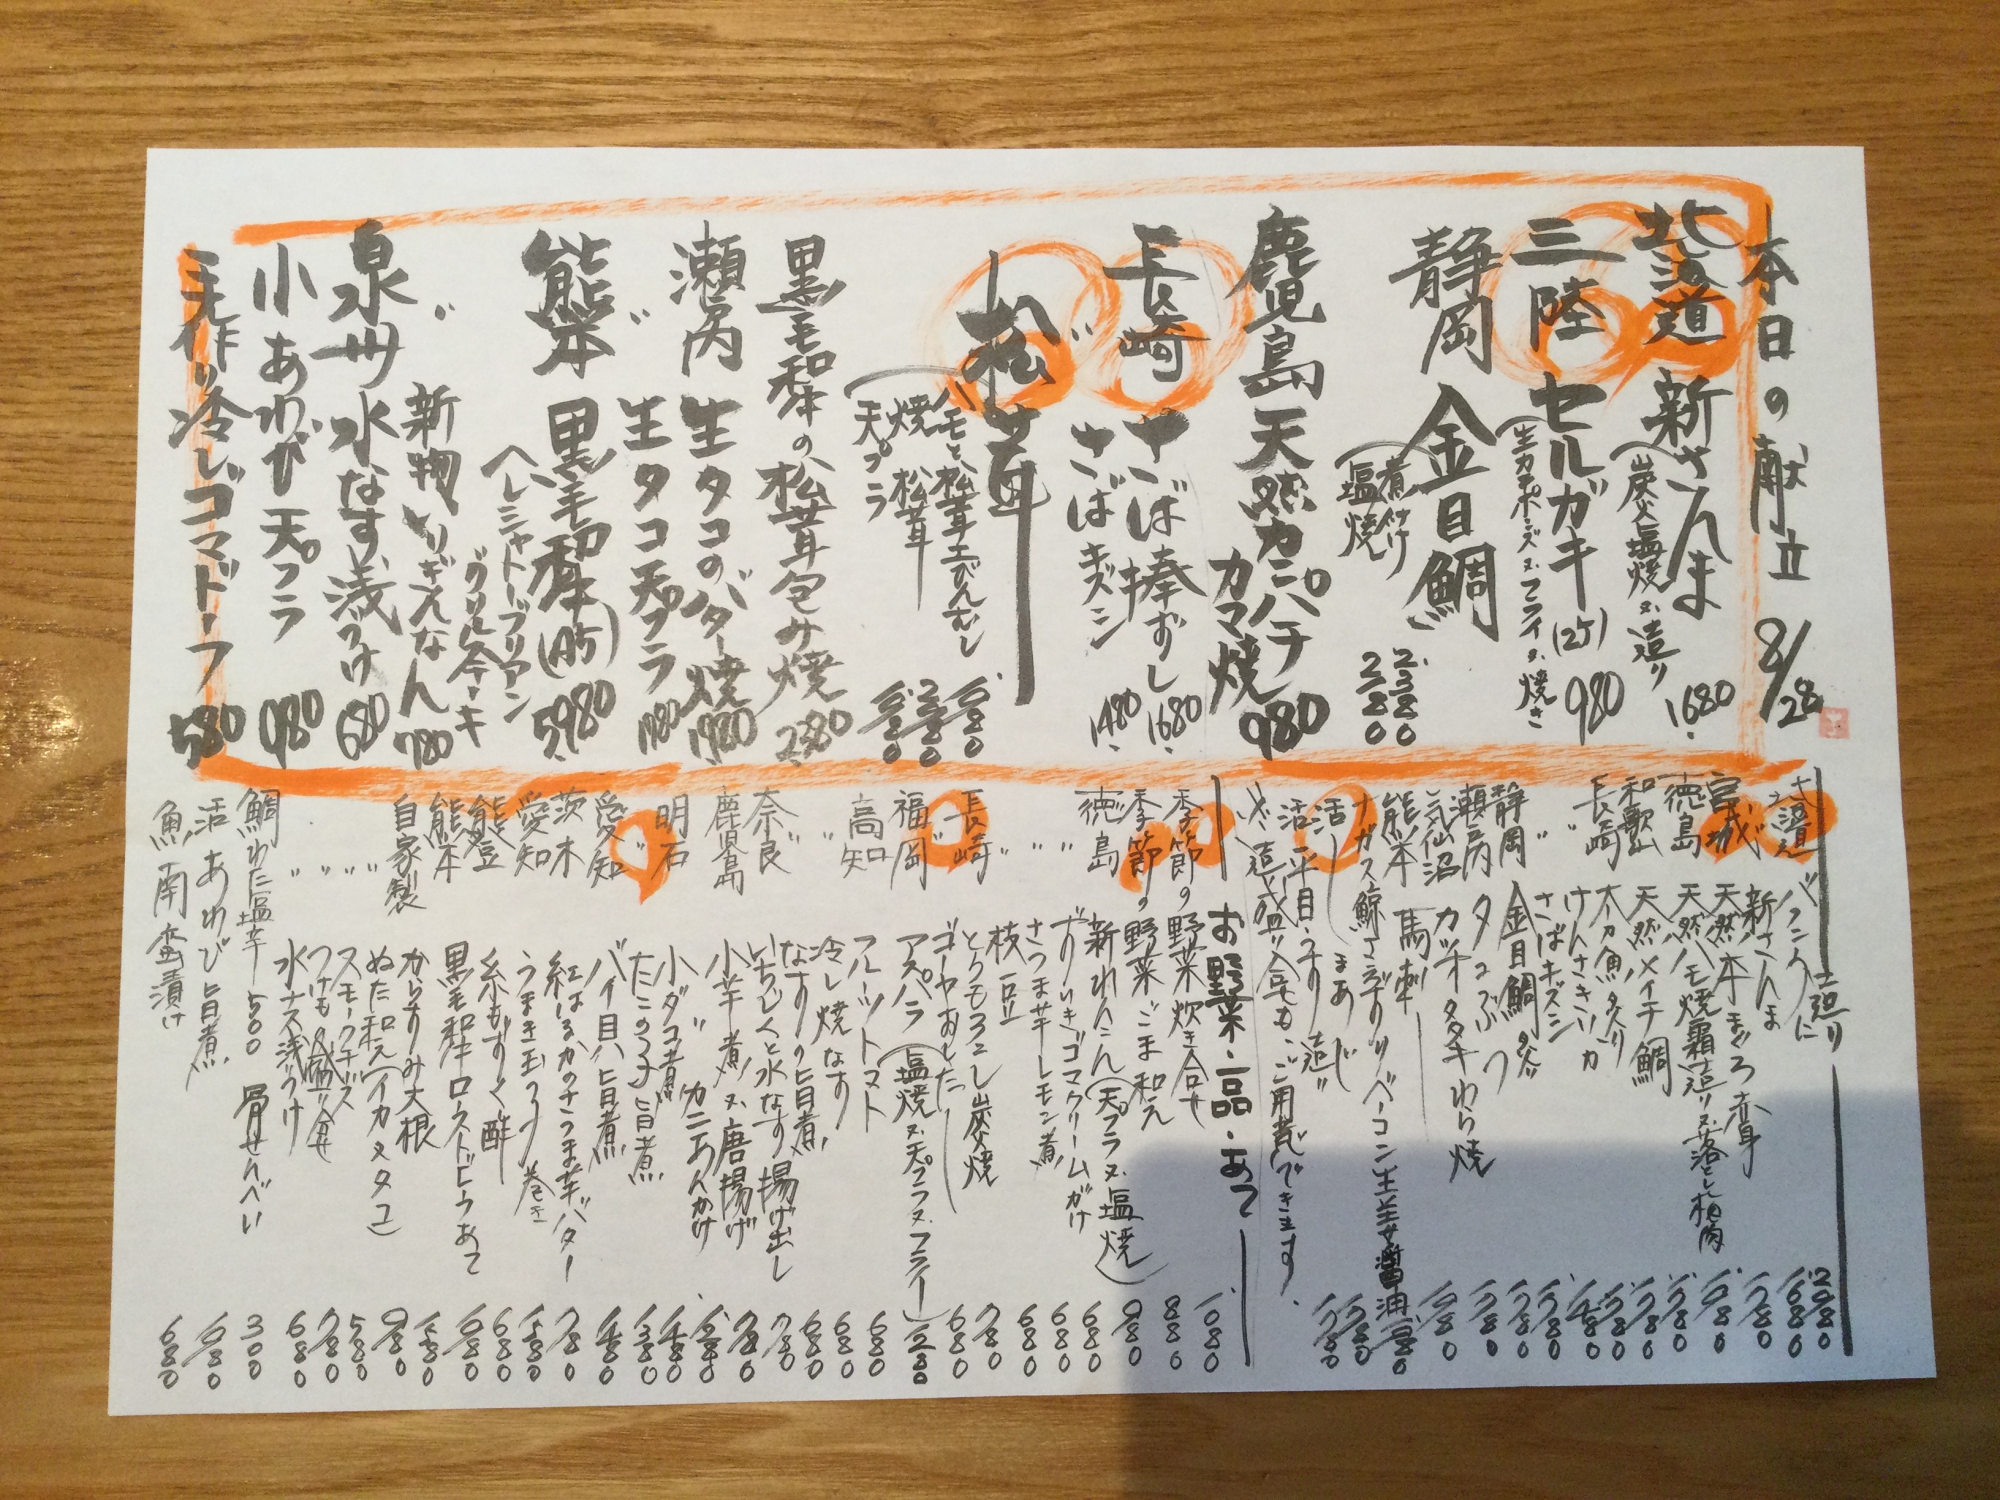 本日の献立 8/28
北海道 新さんま
(炭火塩焼 又、造り 1680.
三陸 セルガキ(2ケ) 980
(生カキポンズ 又、フライ 又、焼き
静岡 金目鯛
煮付け 2.380
塩焼 2.180
鹿児島 天然カンパチ
カマ焼 980
長崎 さば棒ずし 1680.
さばキズシ 1480.
松茸
ハモと松茸土びんむし
焼 松茸
天プラ
黒毛和牛の松茸包み焼 2380
瀬戸内 生タコのバター焼 1980
〃 生タコ天プラ
熊本 黒毛和牛(A5) 5.980
ヘレシャトーブリアン
グリルステーキ
〃 新物いりぎんなん 780
泉州 水なす浅づけ 680
小あわび天プラ 980
手作り冷しゴマドーフ 580
造り
北海道 バフンうに
〃 新さんま 1680
宮城 天然本まぐろ赤身 1780
徳島 天然ハモ焼霜造り 又、落とし梅肉
和歌山 天然メイチ鯛
長崎 太刀魚炙り
〃 けんさきいか
〃 さばキズシ 1480
静岡 金目鯛炙
瀬戸内 タコぶつ
気仙沼 カツオタタキわら焼
熊本 馬刺
ナガス鯨さえずりベーコン生姜醤油
活 まあじ
活 平目 うすり造り
又、造り盛り合せも、ご用意できます。
お野菜・一品・あて
季節の野菜炊き合せ 1080
季節の野菜ごま和え 880
徳島 新れんこん(天プラ 又、塩焼) 980
〃 ずいきゴマクリームがけ 680
〃 さつま芋レモン煮 680
〃 枝豆 680
長崎 とうもろこし炭火焼 780
〃 ゴーヤおひたし 680
福岡 アスパラ(塩焼 又、天プラ 又、フライ)
高知 フルーツトマト 680
〃 冷し焼なす 680
〃 なすの旨煮 680
奈良 いちじくと水なす揚げ出し 780
鹿児島 小芋煮 又、唐揚げ 780
〃 カニあんかけ
明石 小ダコ煮 1480
〃 たこの子旨煮 1380
愛知 バイ貝旨煮 1480
茨木 紅はるかのさつま芋バター 780
愛知 うまき玉(うなぎ巻き
能登 糸もずく酢 680
熊本 黒毛和牛ローストビーフあて
自家製 からすみ大根
〃 ぬた和え(イカタタコ) 980
〃 スモークチーズ 580
〃 つけもの盛り合せ 780
〃 水ナス浅づけ 680
鯛わた塩辛 500 骨せんべい 300
活あわび旨煮
魚南蛮漬け 680